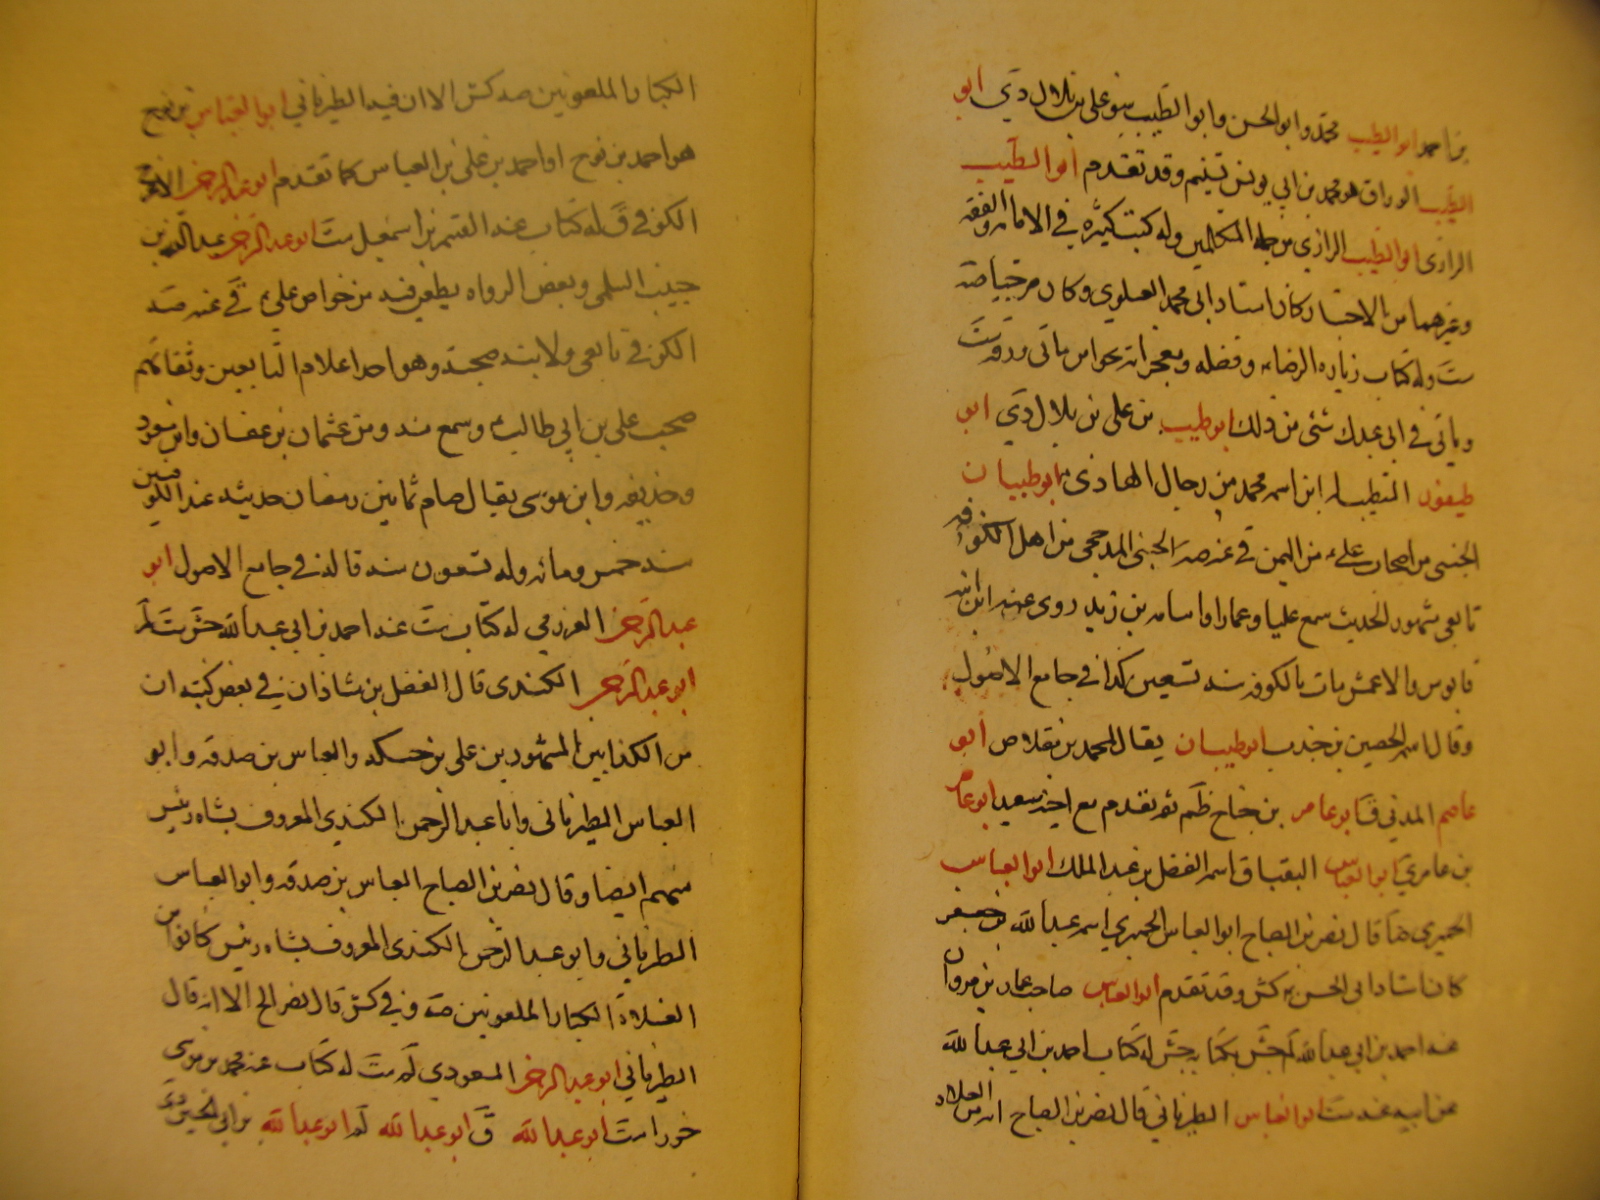 بن احمد ابو الطيب محمد وابو الحسن وابو الطيب بنو علي بن بلال دي ابو
الطيب الوراق هو محمد بن ابي يونس تسنيم وقد تقدم ابو الطيب
الرازي ابو الطيب الرازي من جملة المتكلمين وله كتب كثيرة في الامامة والفقه
وغيرهما من الاخبار كان استاد ابي محمد العلوي وكان مرجئيا
ست وله كتاب زيارة الرضا وفضله ومعجزاته نحو من مأتي ورقة ست
ويأتي في ابي عبدك شئ من ذلك ابو طيب بن علي بن بلال دي ابو
طيفور المتطبب له ابن اسمه محمد من رجال الهادي ابو ظبيان
الجنبي من اصحاب علي من اليمن في عنه الجنبي المذحجي من اهل الكوفة
تابعي مشهور الحديث سمع عليا وعمارا واسامة بن زيد روى عنه ابنه
قابوس والاعمش مات بالكوفة سنة تسعين كذا في جامع الاصول
وقال اسمه الحصين بن جندب ابو ظبيان يقال لمحمد بن مقلاص ابو
عاصم المدني ق ابو عامر بن جناح ظم ثم تقدم مع اخيه سعيد ابو عامر
بن عامر ي ابو العباس البقباق اسمه الفضل بن عبد الملك ابو العباس
الحميري قال نصر بن الصباح ابو العباس الحميري اسمه عبد الله بن جعفر
كان استاد ابي الحسن كش وقد تقدم ابو العباس صاحب عمار بن مروان
عنه احمد بن ابي عبد الله لم جش له كتاب احمد بن ابي عبد الله
عن ابيه عنه ست ابو العباس الطرناني قال نصر بن الصباح انه من الغلاة
الكبار الملعونين كش الا ان فيه الطرناني ابو العباس بن نوح
هو احمد بن نوح او احمد بن علي بن العباس كما تقدم ابو عبد الرحمن الاعرج
الكوفي ق له كتاب عنه القسم بن اسمعيل ست ابو عبد الرحمن عبد الله بن
حبيب السلمي وبعض الرواة يطعن فيه من خواص علي ق في عنه
الكوفي تابعي ولابيه صحبة وهو احد اعلام التابعين وثقاتهم
صحب علي بن ابي طالب وسمع منه ومن عثمان بن عفان وابن مسعود
وحذيفة وابن موسى يقال صام ثمانين رمضان حديثه عند الكوفيين
سنة خمس ومائة وله تسعون سنة قاله في جامع الاصول ابو
عبد الرحمن العرزمي له كتاب ست عنه احمد بن ابي عبد الله جش ست لم
ابو عبد الرحمن الكندي قال الفضل بن شاذان في بعض كتبه ان
من الكذابين المشهورين علي بن حسكه والعباس بن صدقة وابو
العباس الطرناني وابا عبد الرحمن الكندي المعروف بشاه رئيس
منهم ايضا وقال نصر بن الصباح العباس بن صدقة وابو العباس
الطرناني وابو عبد الرحمن الكندي المعروف بشاه رئيس كانوا من
الغلاة الكبار الملعونين وفي كش قال نصر الخ الا انه قال
الطرناني ابو عبد الرحمن المسعودي لم ست له كتاب عنه محمد بن موسى
خوراء ست ابو عبد الله ق ابو عبد الله لم ابو عبد الله بن ابي الحسين